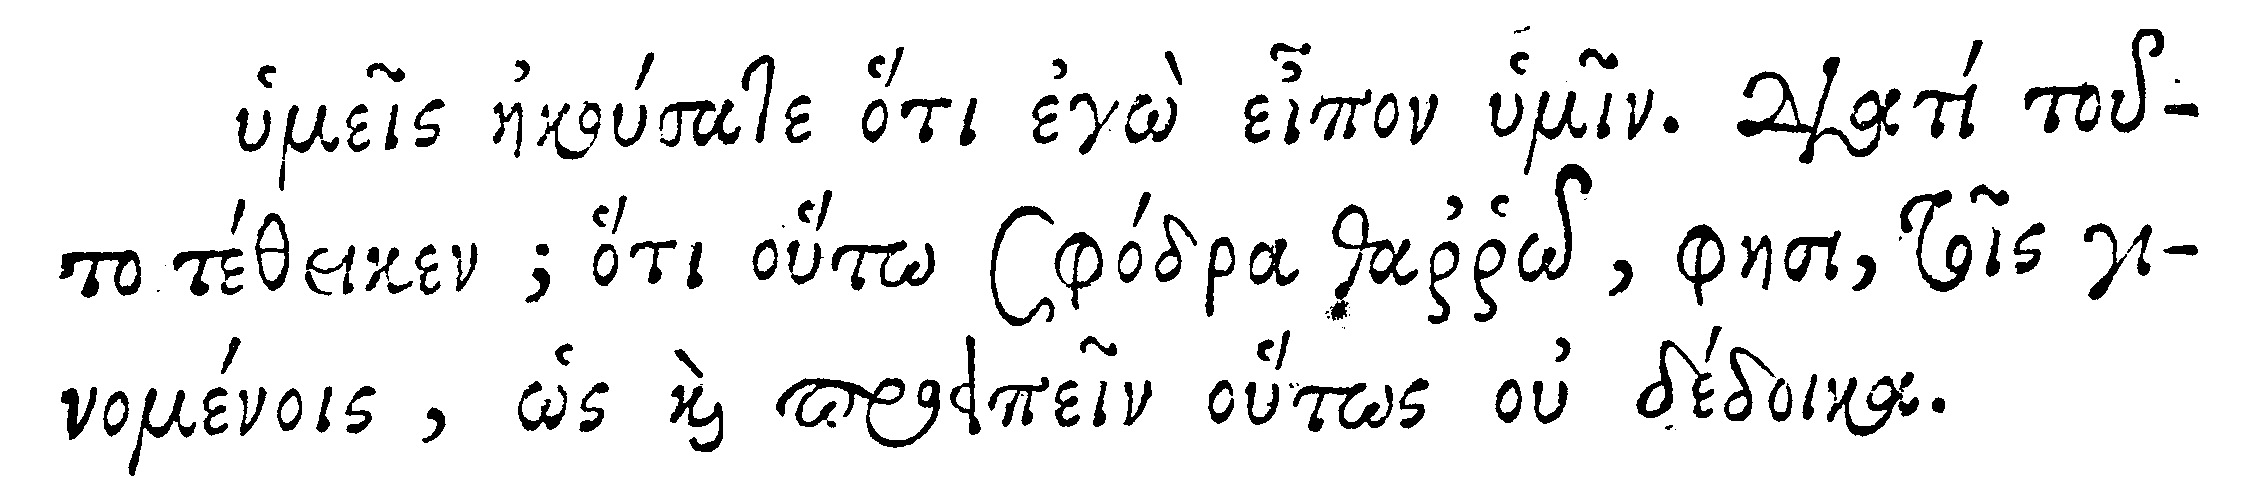 ὑμεῖς ἠκούσατε ὅτι ἐγὼ εἶπον ὑμῖν. Διατί τοῦ-
το τέθεικεν ; ὅτι οὕτω σφόδρα θαῤῥῶ , φησι, τοῖς γι-
νομένοις , ὡς καὶ προειπεῖν οὕτως οὐ δέδοικα.